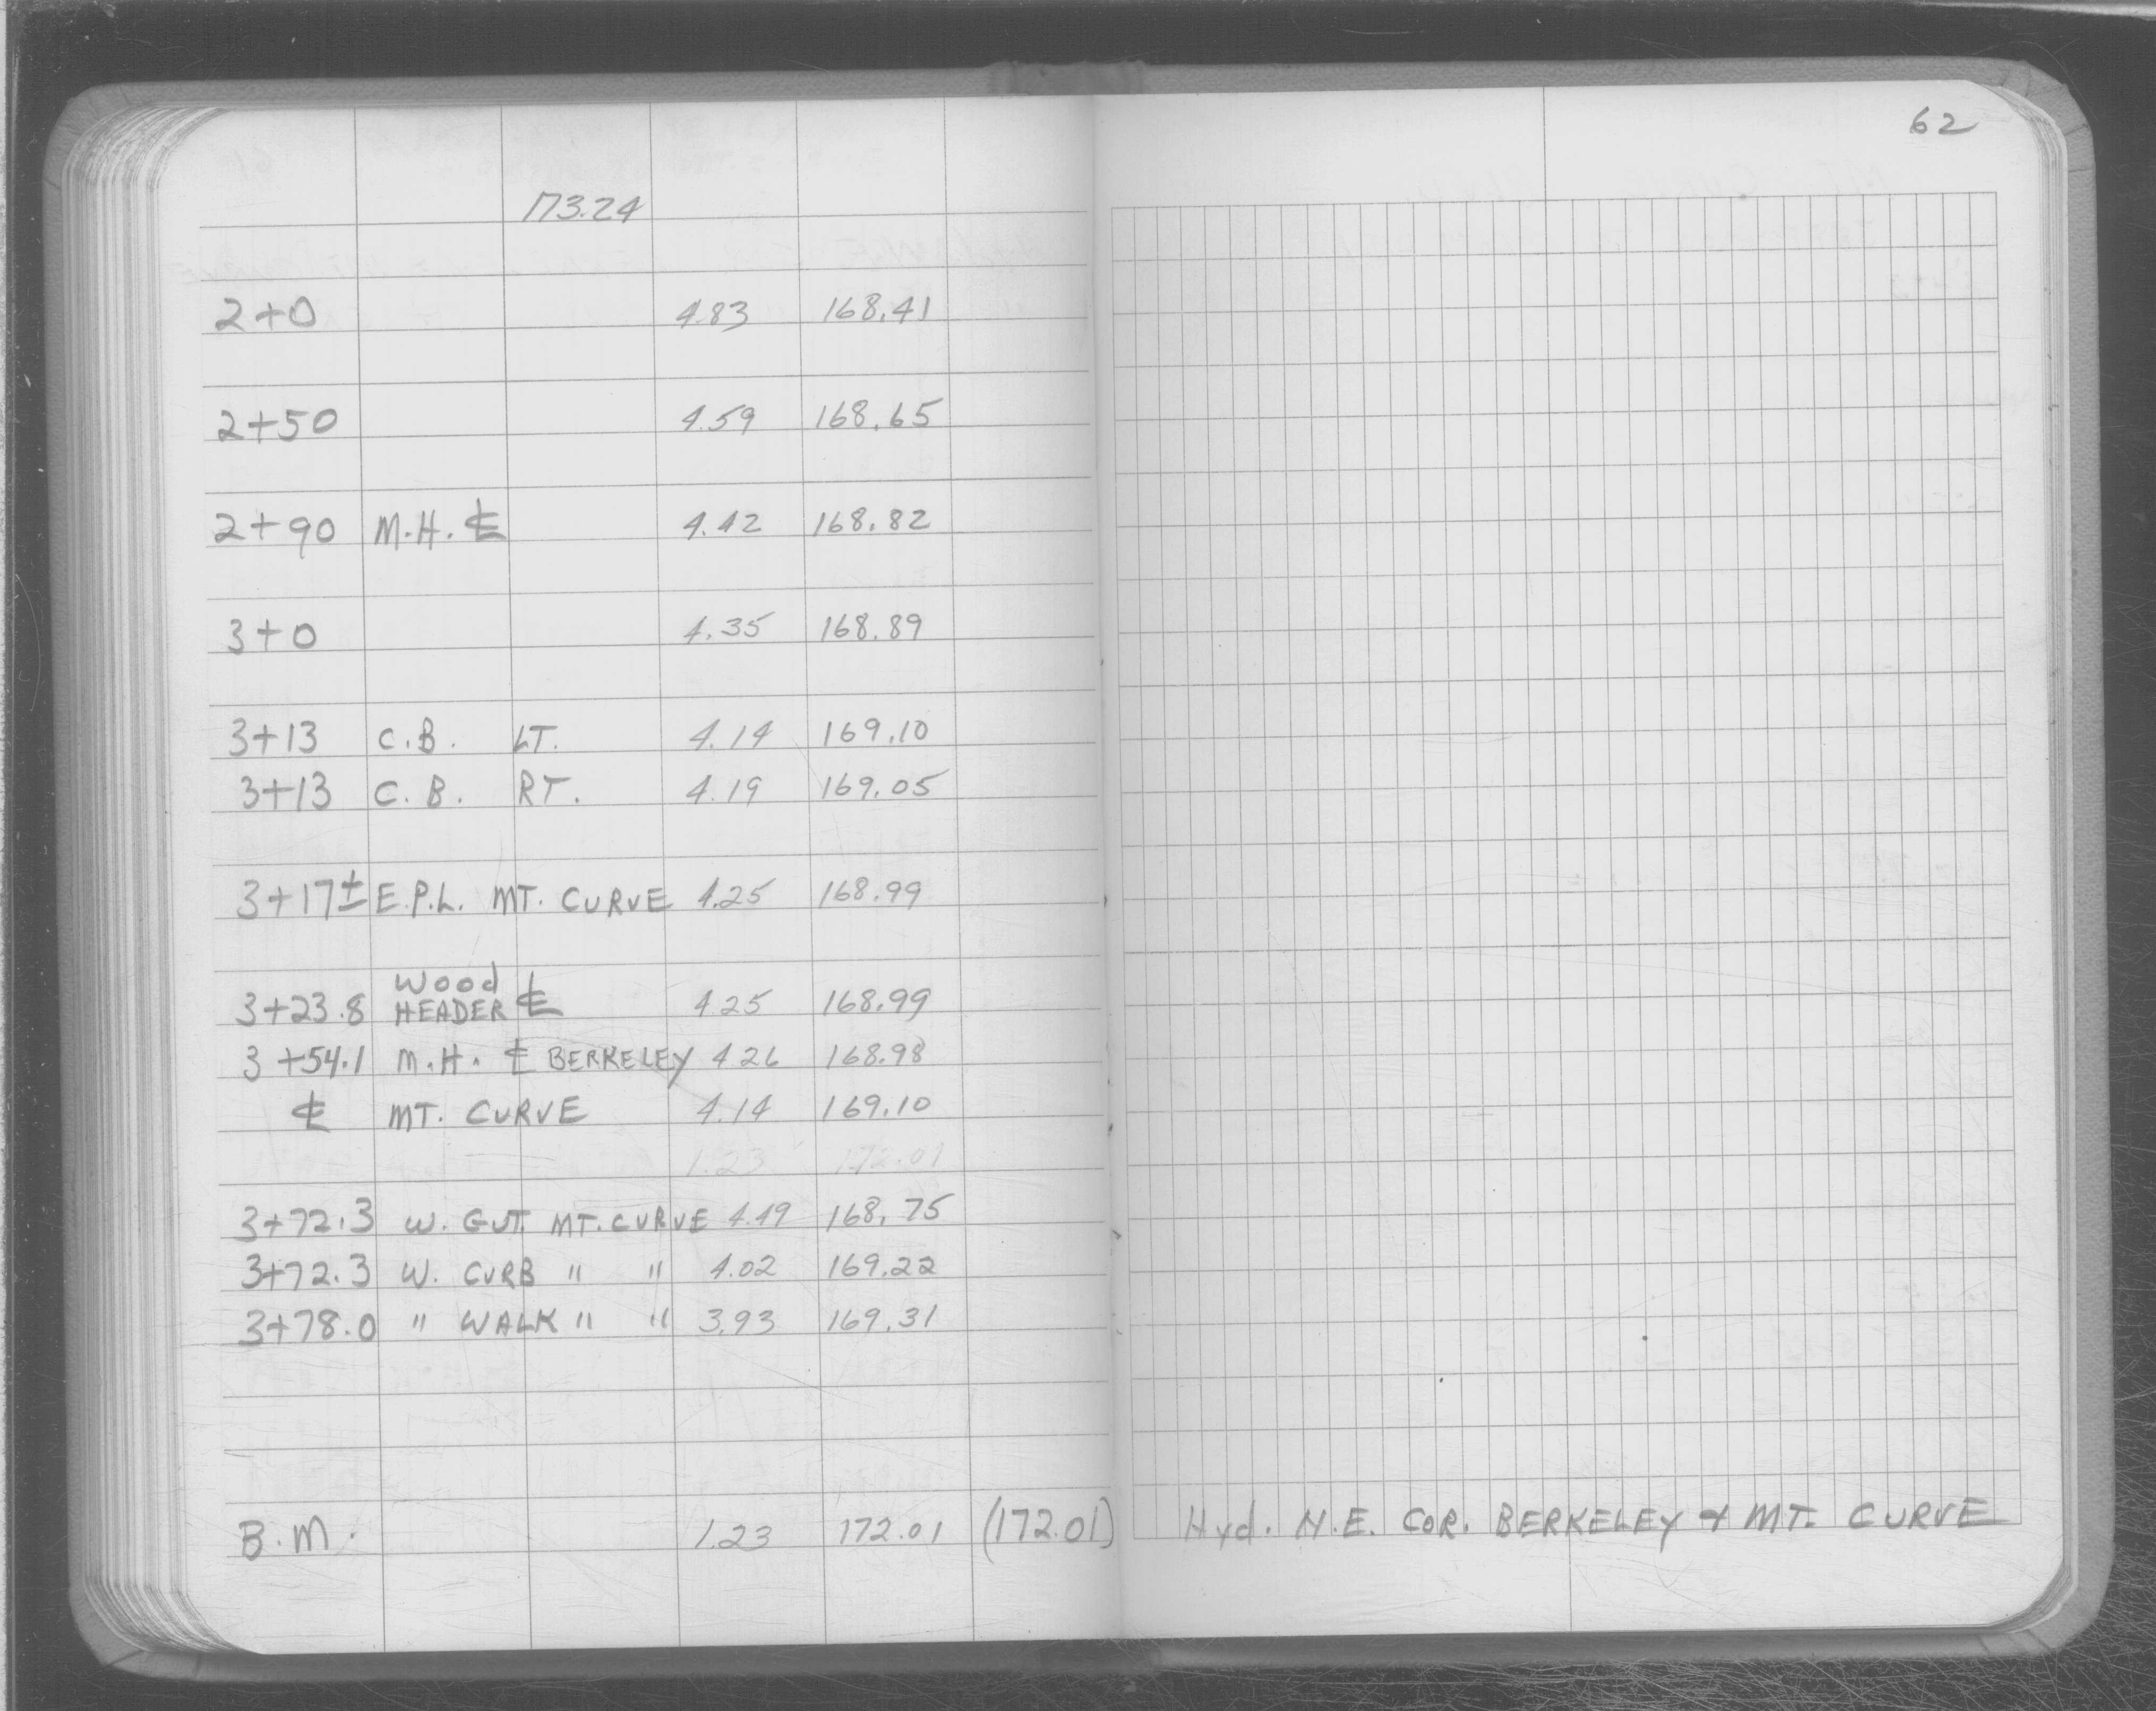 62
173.24
2+0 4.83 168.41
2+50 4.59 168.65
2+90 M.H. ℄ 4.42 168.82
3+0 4.35 168.89
3+13 C.B. LT. 4.14 169.10
3+13 C.B. RT. 4.19 169.05
3+17± E.P.L. MT. CURVE 4.25 168.99
Wood
3+23.8 HEADER ℄ 4.25 168.99
3+54.1 M.H. ℄ BERKELEY 4.26 168.98
℄ MT. CURVE 4.14 169.10
1.23 172.01
3+72.3 W. GUT. MT. CURVE 4.49 168.75
3+72.3 W. CURB " " 4.02 169.22
3+78.0 " WALK " " 3.93 169.31
B.M. 1.23 172.01 (172.01) Hyd. N.E. COR. BERKELEY & MT. CURVE